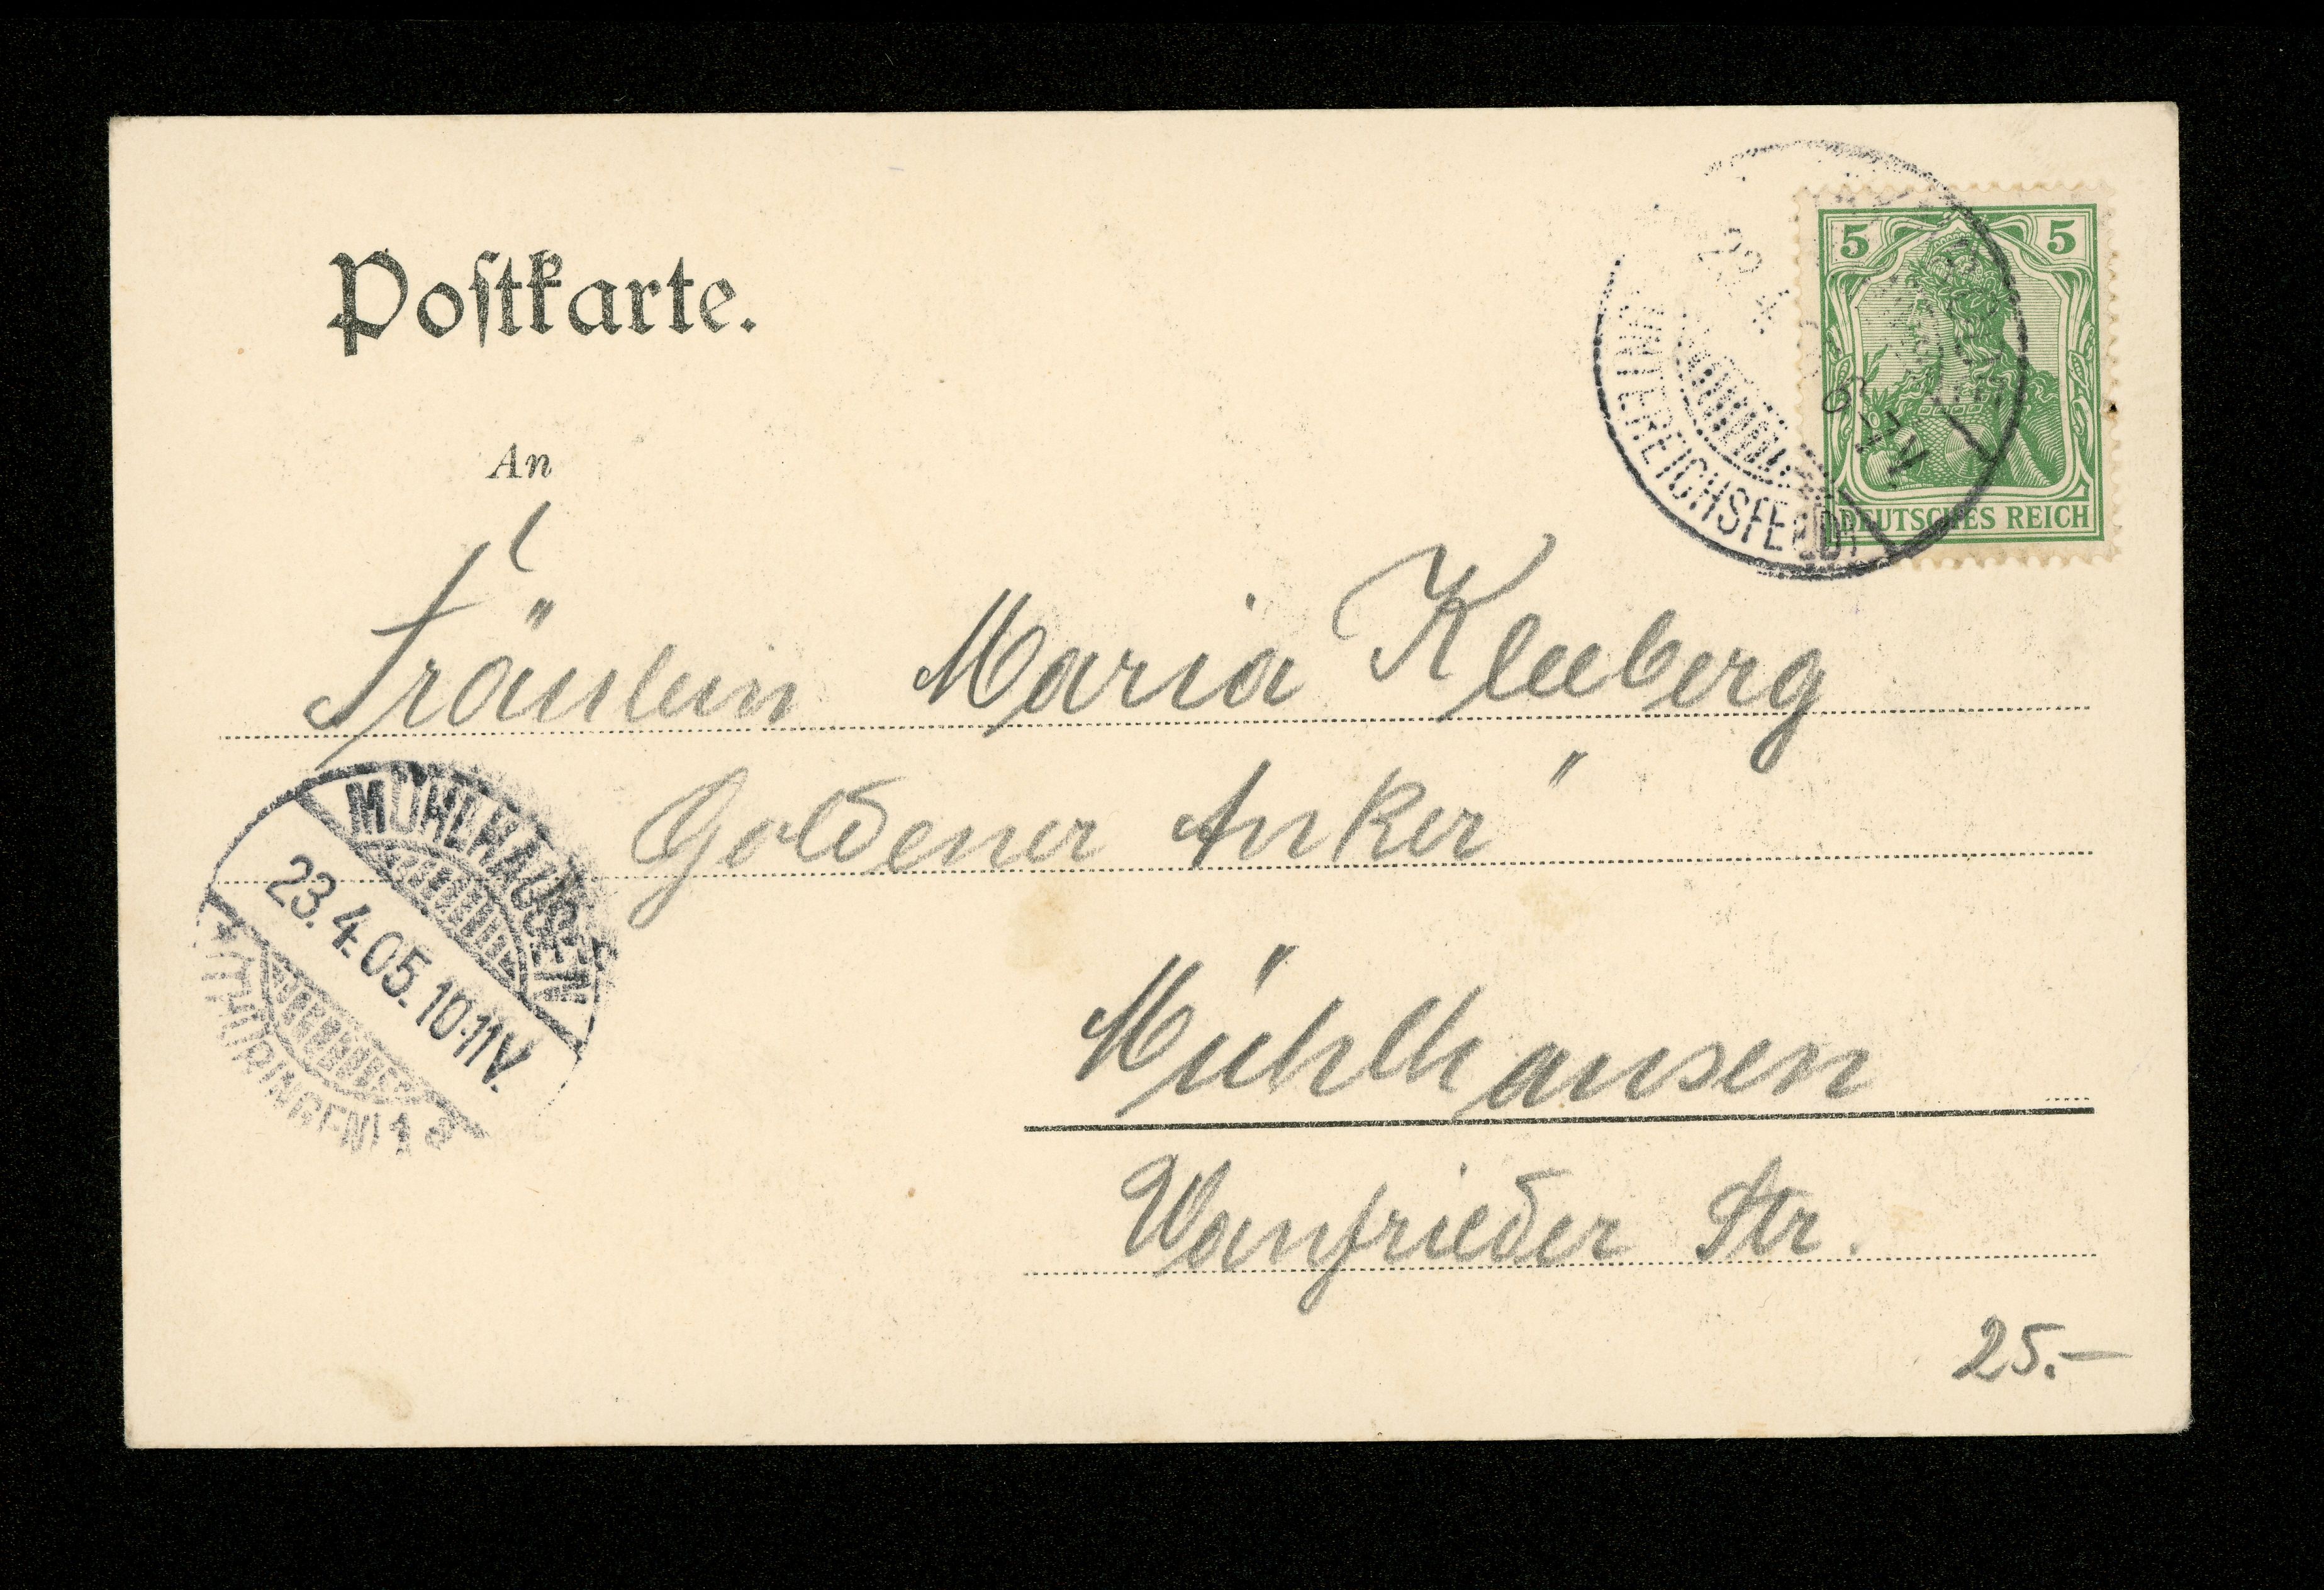 Postkarte.
5 5
DEUTSCHES REICH
(UNTEREICHSFELD)
An
Fräulein Maria Kleeberg
Goldener Anker"
MÜHLHAUSEN
23.4.05.10-11V.
(THÜRINGEN) 1
Mühlhausen
Wanfrieder Str.
25.-